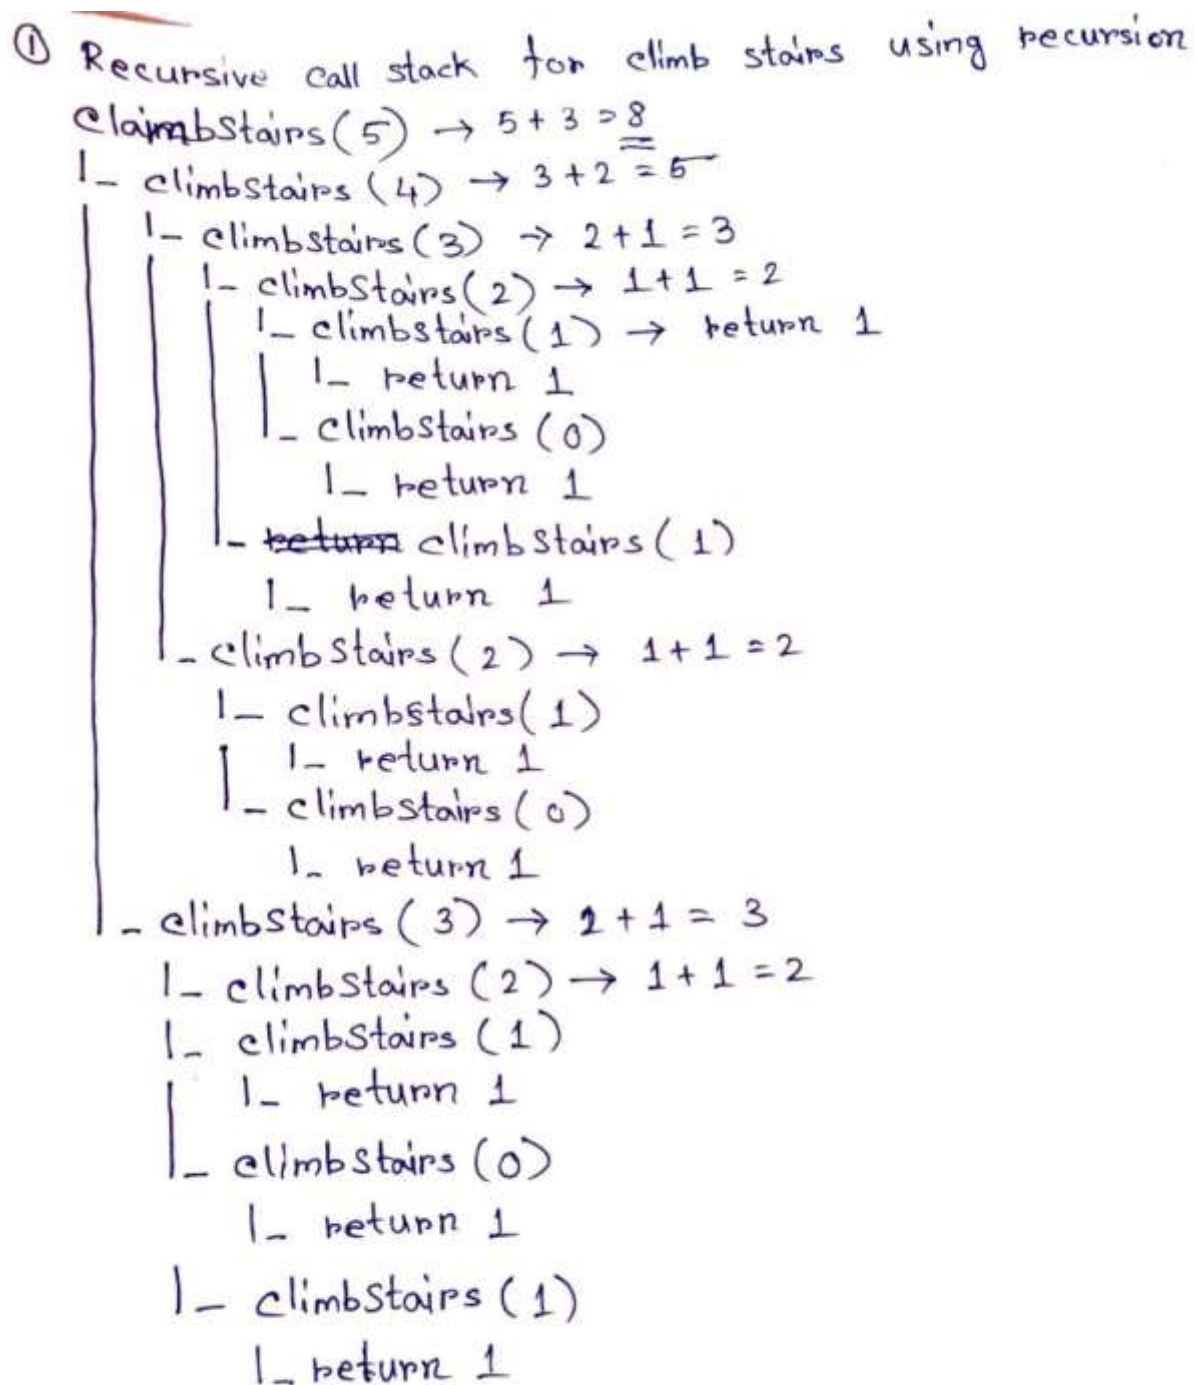 ① Recursive call stack for climb stairs using recursion
ClaimbStairs(5) → 5+3=8
|_ climbstairs(4) → 3+2=5
|_ climbstairs(3) → 2+1=3
|_ climbStairs(2) → 1+1=2
|_ climbstairs(1) → return 1
|_ return 1
|_ climbstairs(0)
|_ return 1
|_ return climbStairs(1)
|_ return 1
|_ climbStairs(2) → 1+1=2
|_ climbstairs(1)
|_ return 1
|_ climbstairs(0)
|_ return 1
|_ climbStairs(3) → 2+1=3
|_ climbStairs(2) → 1+1=2
|_ climbStairs(1)
|_ return 1
|_ climbstairs(0)
|_ return 1
|_ climbStairs(1)
|_ return 1